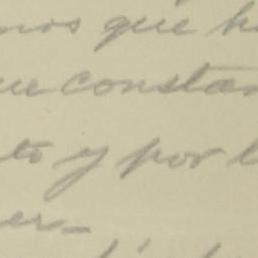 mos que h
ue constan
to y por l
er-